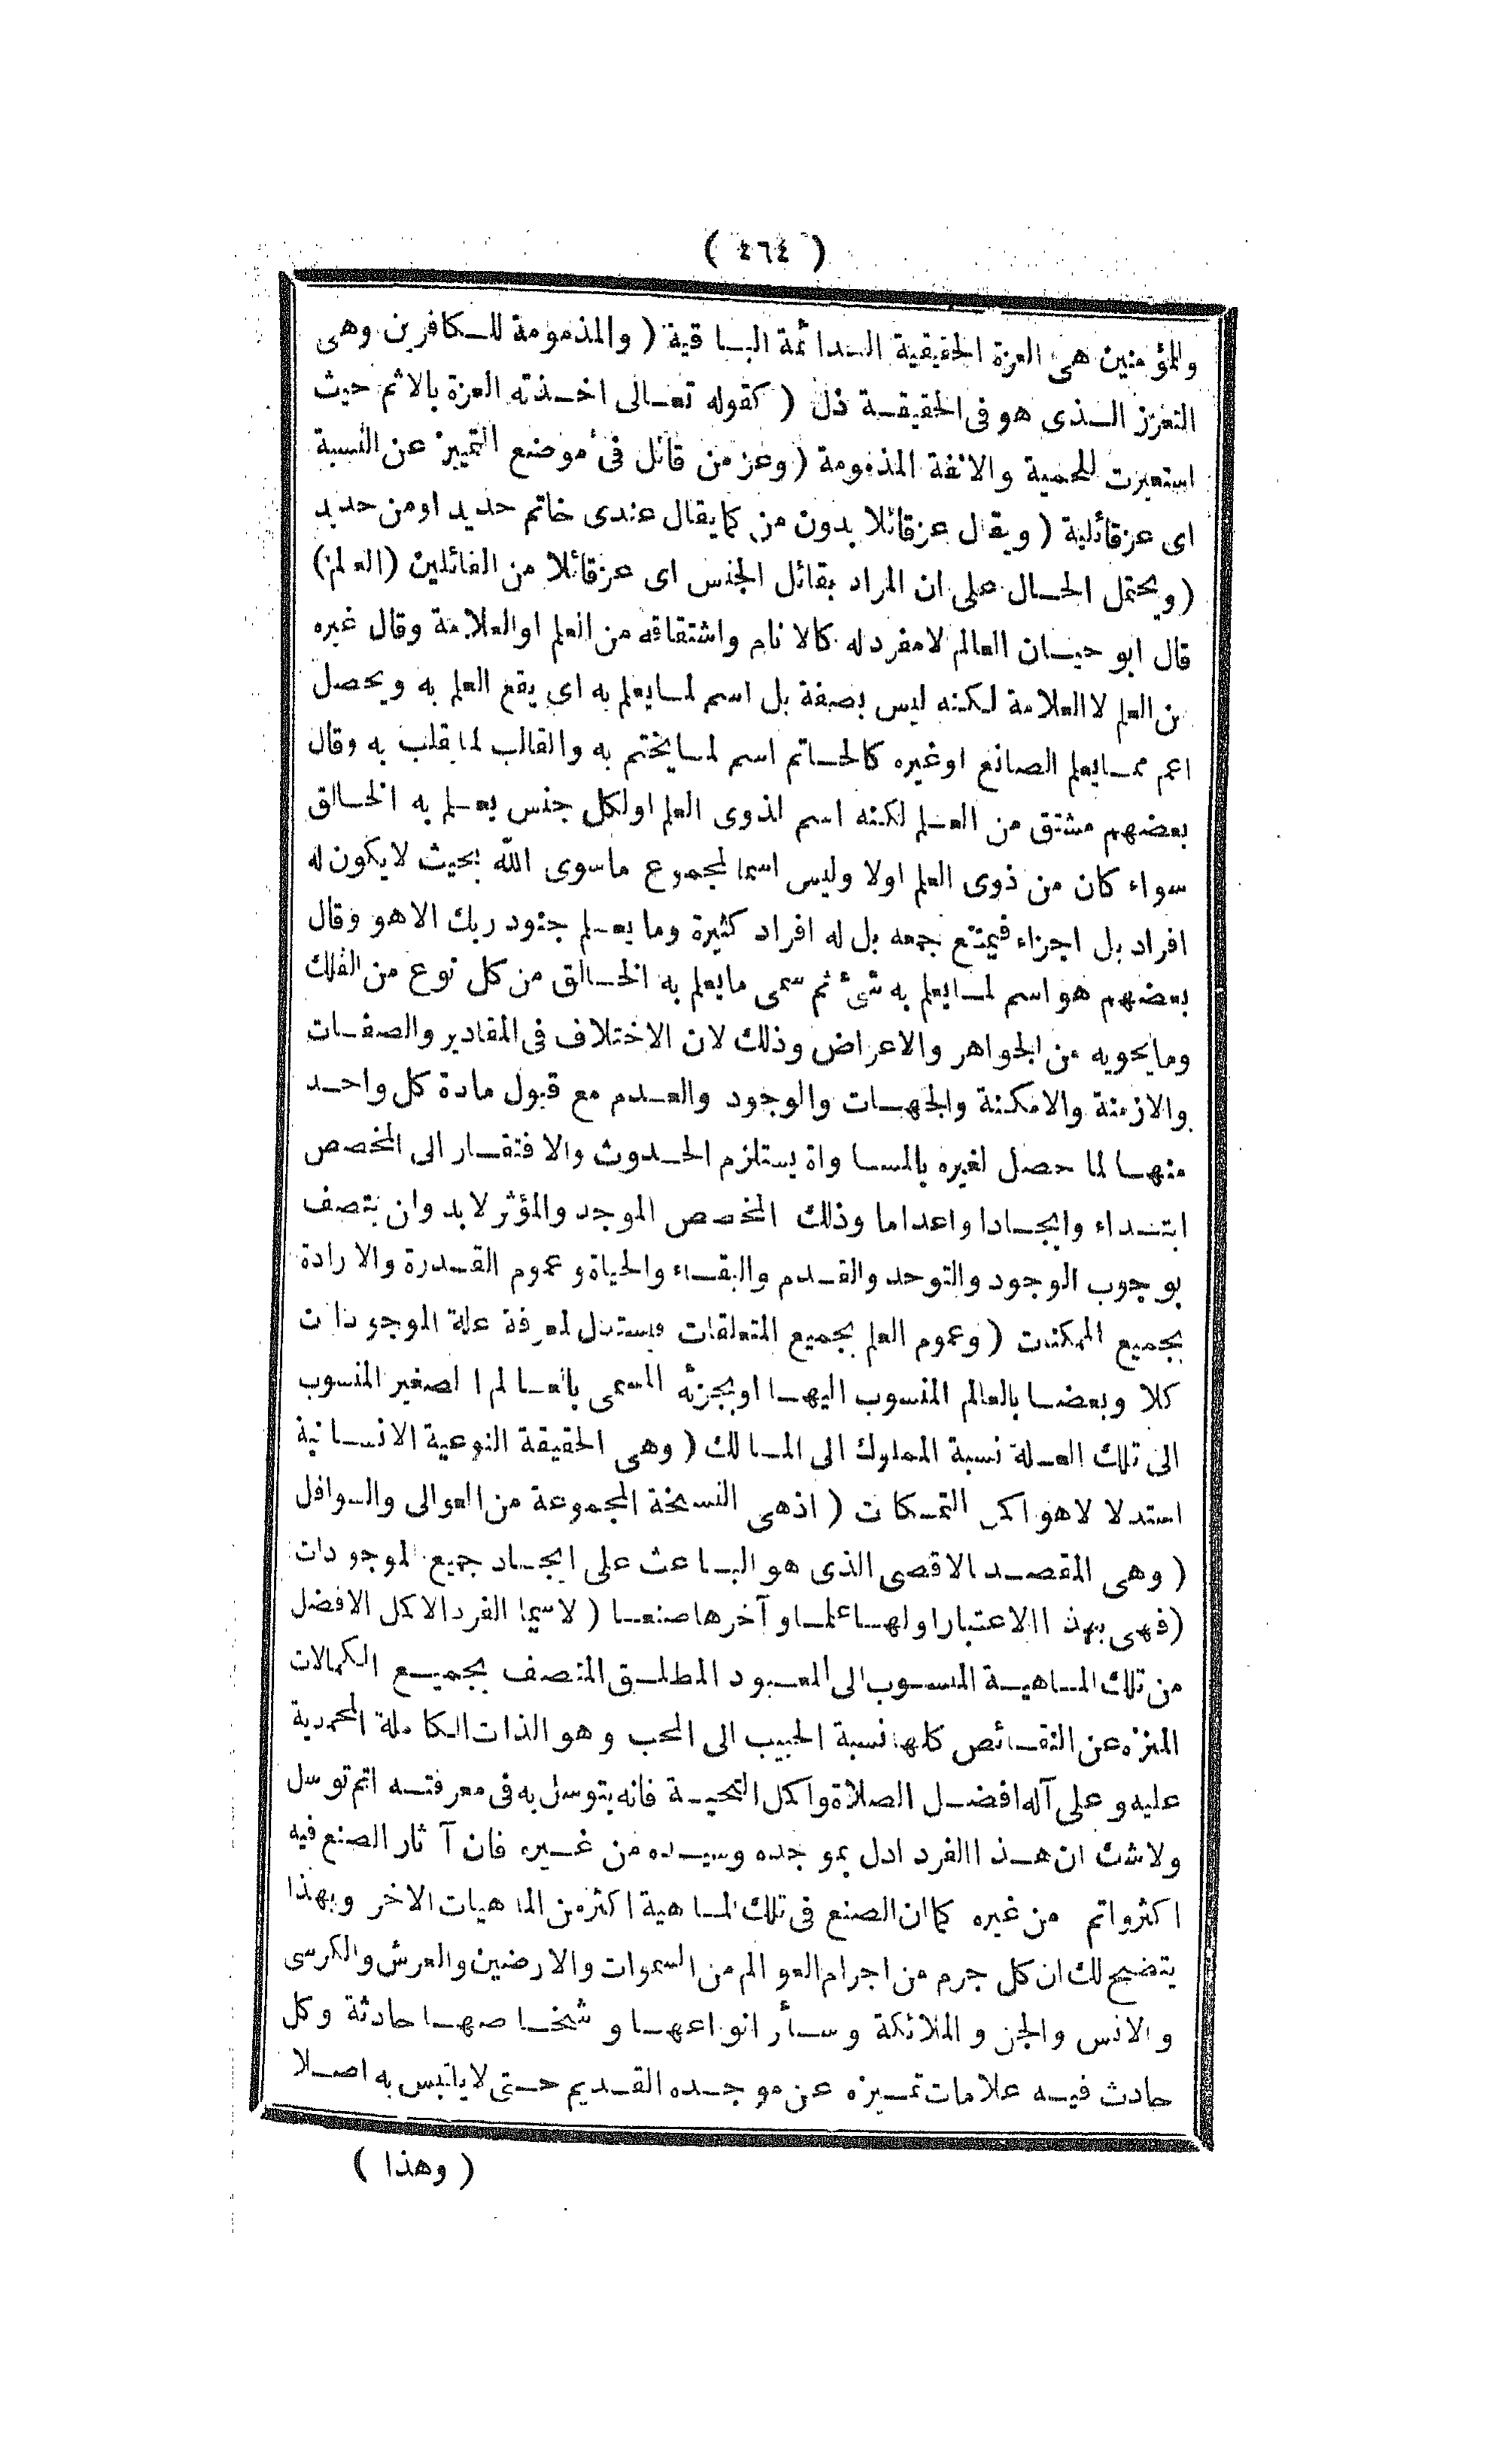 ( ٤٦٤ )
وللمؤمنين هى العزة الحقيقية الدائمة الباقية ( والمذمومة للكافرين وهى
التعزز الذى هو فى الحقيقة ذل ( كقوله تعالى اخذته العزة بالاثم حيث
استعيرت للحمية والانفة المذمومة ( وعز من قائل فى موضع التمييز عن النسبة
اى عز قائلية ( ويقال عز قائلا بدون من كما يقال عندى خاتم حديد او من حديد
( ويحتمل الحال على ان المراد بقائل الجنس اى عز قائلا من القائلين ( العلم )
قال ابو حيان العالم لا مفرد له كالانام واشتقاقه من العلم او العلامة وقال غيره
من العلم لا العلامة لكنه ليس بصفة بل اسم لما يعلم به اى يقع العلم به ويحصل
اعم مما يعلم الصانع او غيره كالخاتم اسم لما يختم به والقالب لما يقلب به وقال
بعضهم مشتق من العلم لكنه اسم لذوى العلم او لكل جنس يعلم به الخالق
سواء كان من ذوى العلم اولا وليس اسما لمجموع ما سوى الله بحيث لا يكون له
افراد بل اجزاء فيمتنع جمعه بل له افراد كثيرة وما يعلم جنود ربك الا هو وقال
بعضهم هو اسم لما يعلم به شئ ثم سمى ما يعلم به الخالق من كل نوع من الفلك
وما يحويه من الجواهر والاعراض وذلك لان الاختلاف فى المقادير والصفات
والازمنة والامكنة والجهات والوجود والعدم مع قبول مادة كل واحد
منها لما حصل لغيره بالمساواة يستلزم الحدوث والافتقار الى المخصص
ابتداء وايجادا واعداما وذلك المخصص الموجد والمؤثر لا بد وان يتصف
بوجوب الوجود والتوحد والقدم والبقاء والحياة وعموم القدرة والارادة
بجميع الممكنات ( وعموم العلم بجميع المتعلقات ويستدل لمعرفة علة الموجودات
كلا وبعضا بالعالم المنسوب اليها او بجزئه المسمى بالعالم الاصغير المنسوب
الى تلك العلة نسبة المملوك الى المالك ( وهى الحقيقة النوعية الانسانية
استدلالا هو اكمل التمسكات ( اذ هى النسخة المجموعة من العوالى والسوافل
( وهى المقصد الاقصى الذى هو الباعث على ايجاد جميع الموجودات
( فهى بهذا الاعتبار اولها علما وآخرها صنعا ( لا سيما الفرد الاكمل الافضل
من تلك الماهية المنسوب الى المعبود المطلق المتصف بجميع الكمالات
المنزه عن النقائص كلها نسبة الحبيب الى المحب وهو الذات الكاملة المحمدية
عليه وعلى آله افضل الصلاة واكمل التحية فانه يتوسل به فى معرفته اتم توسل
ولا شك ان هذا الفرد ادل بموجده وسيده من غيره فان آثار الصنع فيه
اكثر واتم من غيره كما ان الصنع فى تلك الماهية اكثر من الماهيات الاخر وبهذا
يتضح لك ان كل جرم من اجرام العوالم من السموات والارضين والعرش والكرسى
والانس والجن والملائكة وسائر انواعها وشخاصها حادثة وكل
حادث فيه علامات تميزه عن موجده القديم حتى لا يلتبس به اصلا
( وهذا )